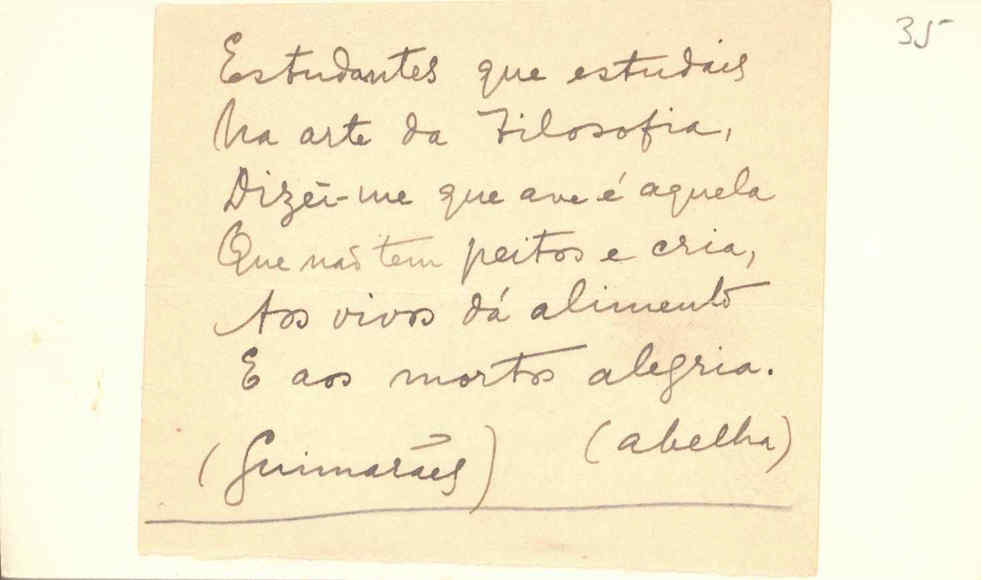 35
Estudantes que estudais
Na arte da Filosofia,
Dizei-me que ave é aquela
Que não tem peitos e cria,
Aos vivos dá alimento
E aos mortos alegria.
(Guimarães) (abelha)